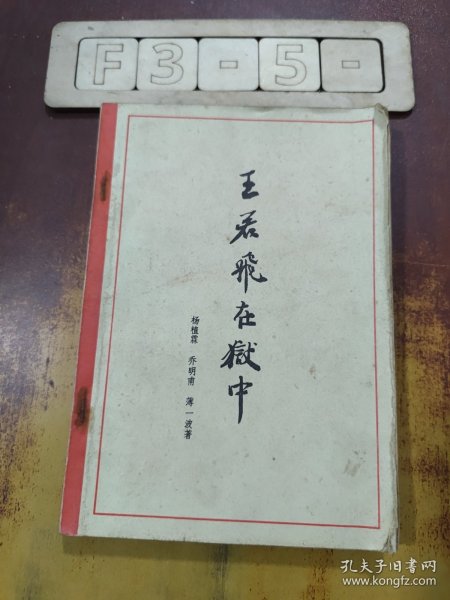 F3-5-
王若飛在獄中
杨植霖 乔明甫 薄一波著
孔夫子旧书网
www.kongfz.com